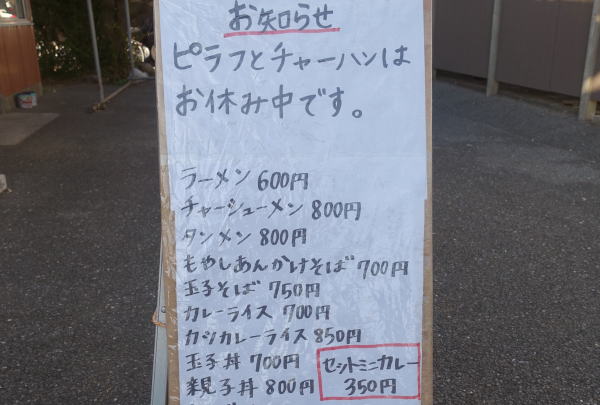 お知らせ
ピラフとチャーハンは
お休み中です。
ラーメン 600円
チャーシューメン 800円
タンメン 800円
もやしあんかけそば 700円
玉子そば 750円
カレーライス 700円
カツカレーライス 850円
玉子丼 700円
親子丼 800円
セットミニカレー
350円